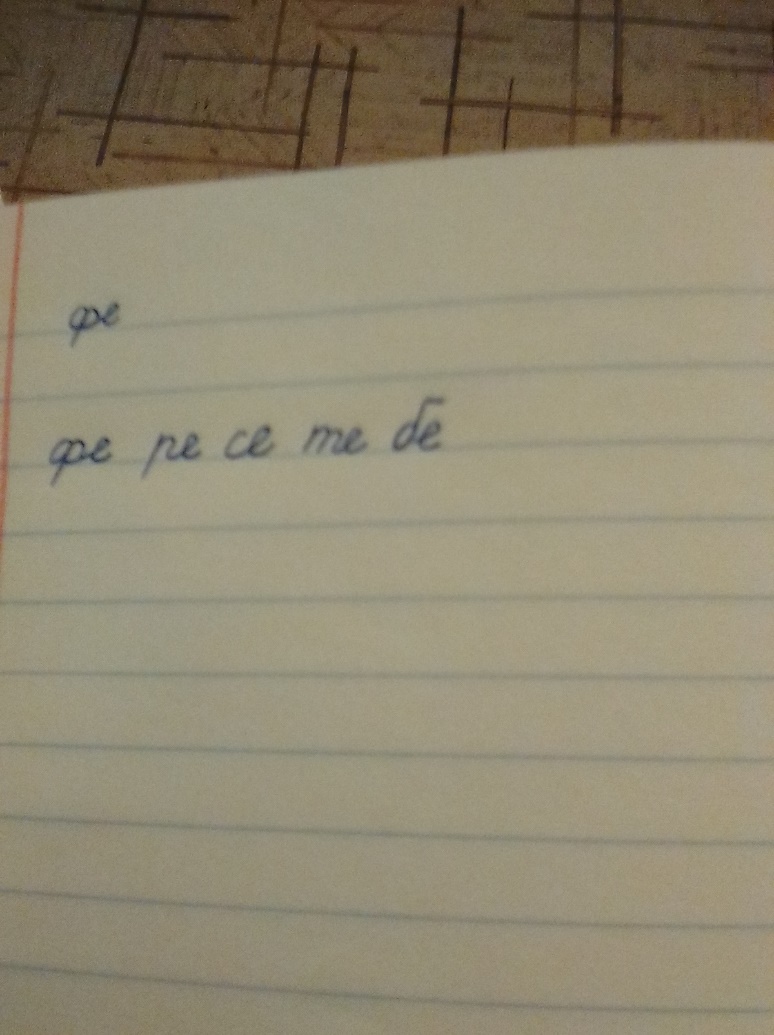 фе
фе ре се те бе